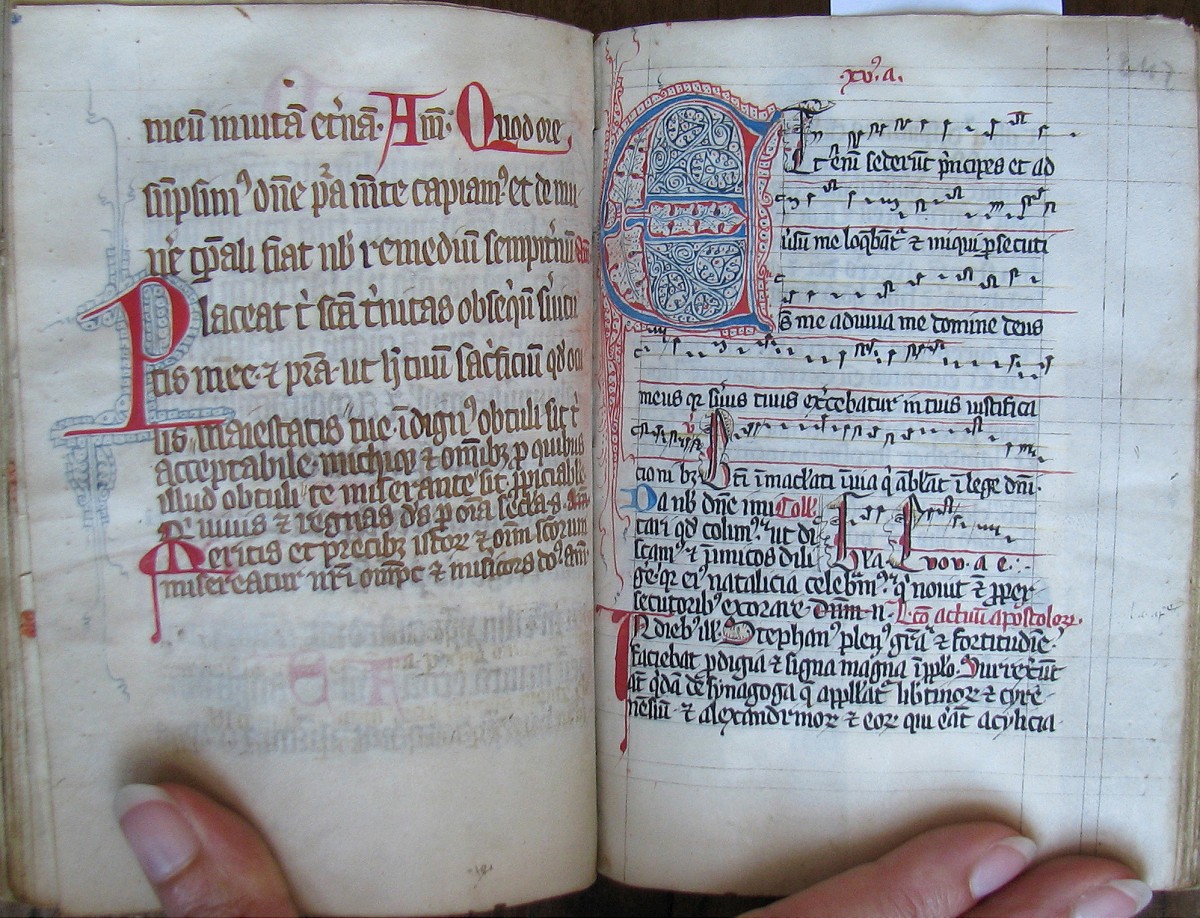 meū in uitā et'nā. Am̄. Quod ore
sūpsim᷒ dn̄e p̄a mēte capiam᷒ et de mu
n'e tp̄ali fiat nb̄ remediū sempit'nū
Placeat t' sc̄a t'nitas obseqiū s'uitu
tis mee ⁊ pr̄a ut h̄ ...
lis maiestatis tue īdign᷒ obtuli sit t'
acceptabile michiqꝫ ⁊ om̄ibꝫ p quibus
illud obtuli te miserante sit ppiciabile
Q' uiuis ⁊ regnas ds̄ p oīa
Meritis et precibꝫ istoꝝ ⁊ oīm scōrum
misereatur nr̄i om̄ps ⁊ misicors do᷒ am̄
xv᷒. a.
Et eni᷒ sederūt p'ncipes et ad
u'sū me loqb̄āt᷒ ⁊ iniqui psecuti
s̄ me adiuua me domine deus
meus qr s'uus tuus ex'cebatur in tuis iustifica
cionibꝫ Bt̄i īmac̄lati ī uia q' ābl̄āt ī lege dn̄i.
Da nb̄ dn̄e imi Coll'
tari qd̄ colim᷒ ut di
scam᷒ ⁊ īimicos dili Gl'a. Euouae.
g'e qr ei᷒ natalicia celebm᷒ q' nouit ⁊ p psec
secutoribꝫ exorare dn̄m n. Lc̄o actuū apostoloꝝ.
In diebꝫ ill'. Stephan᷒ plen᷒ gr̄a ⁊ fortitudīe
faciebat pdigia ⁊ signa magna ī pplo. Surrex'ūt
āt q'dā de synagoga q̄ appllat᷒ lib'tinoꝝ ⁊ cyre
nēsiū ⁊ alexandrinoꝝ ⁊ eoꝝ qui e'āt a cylicia